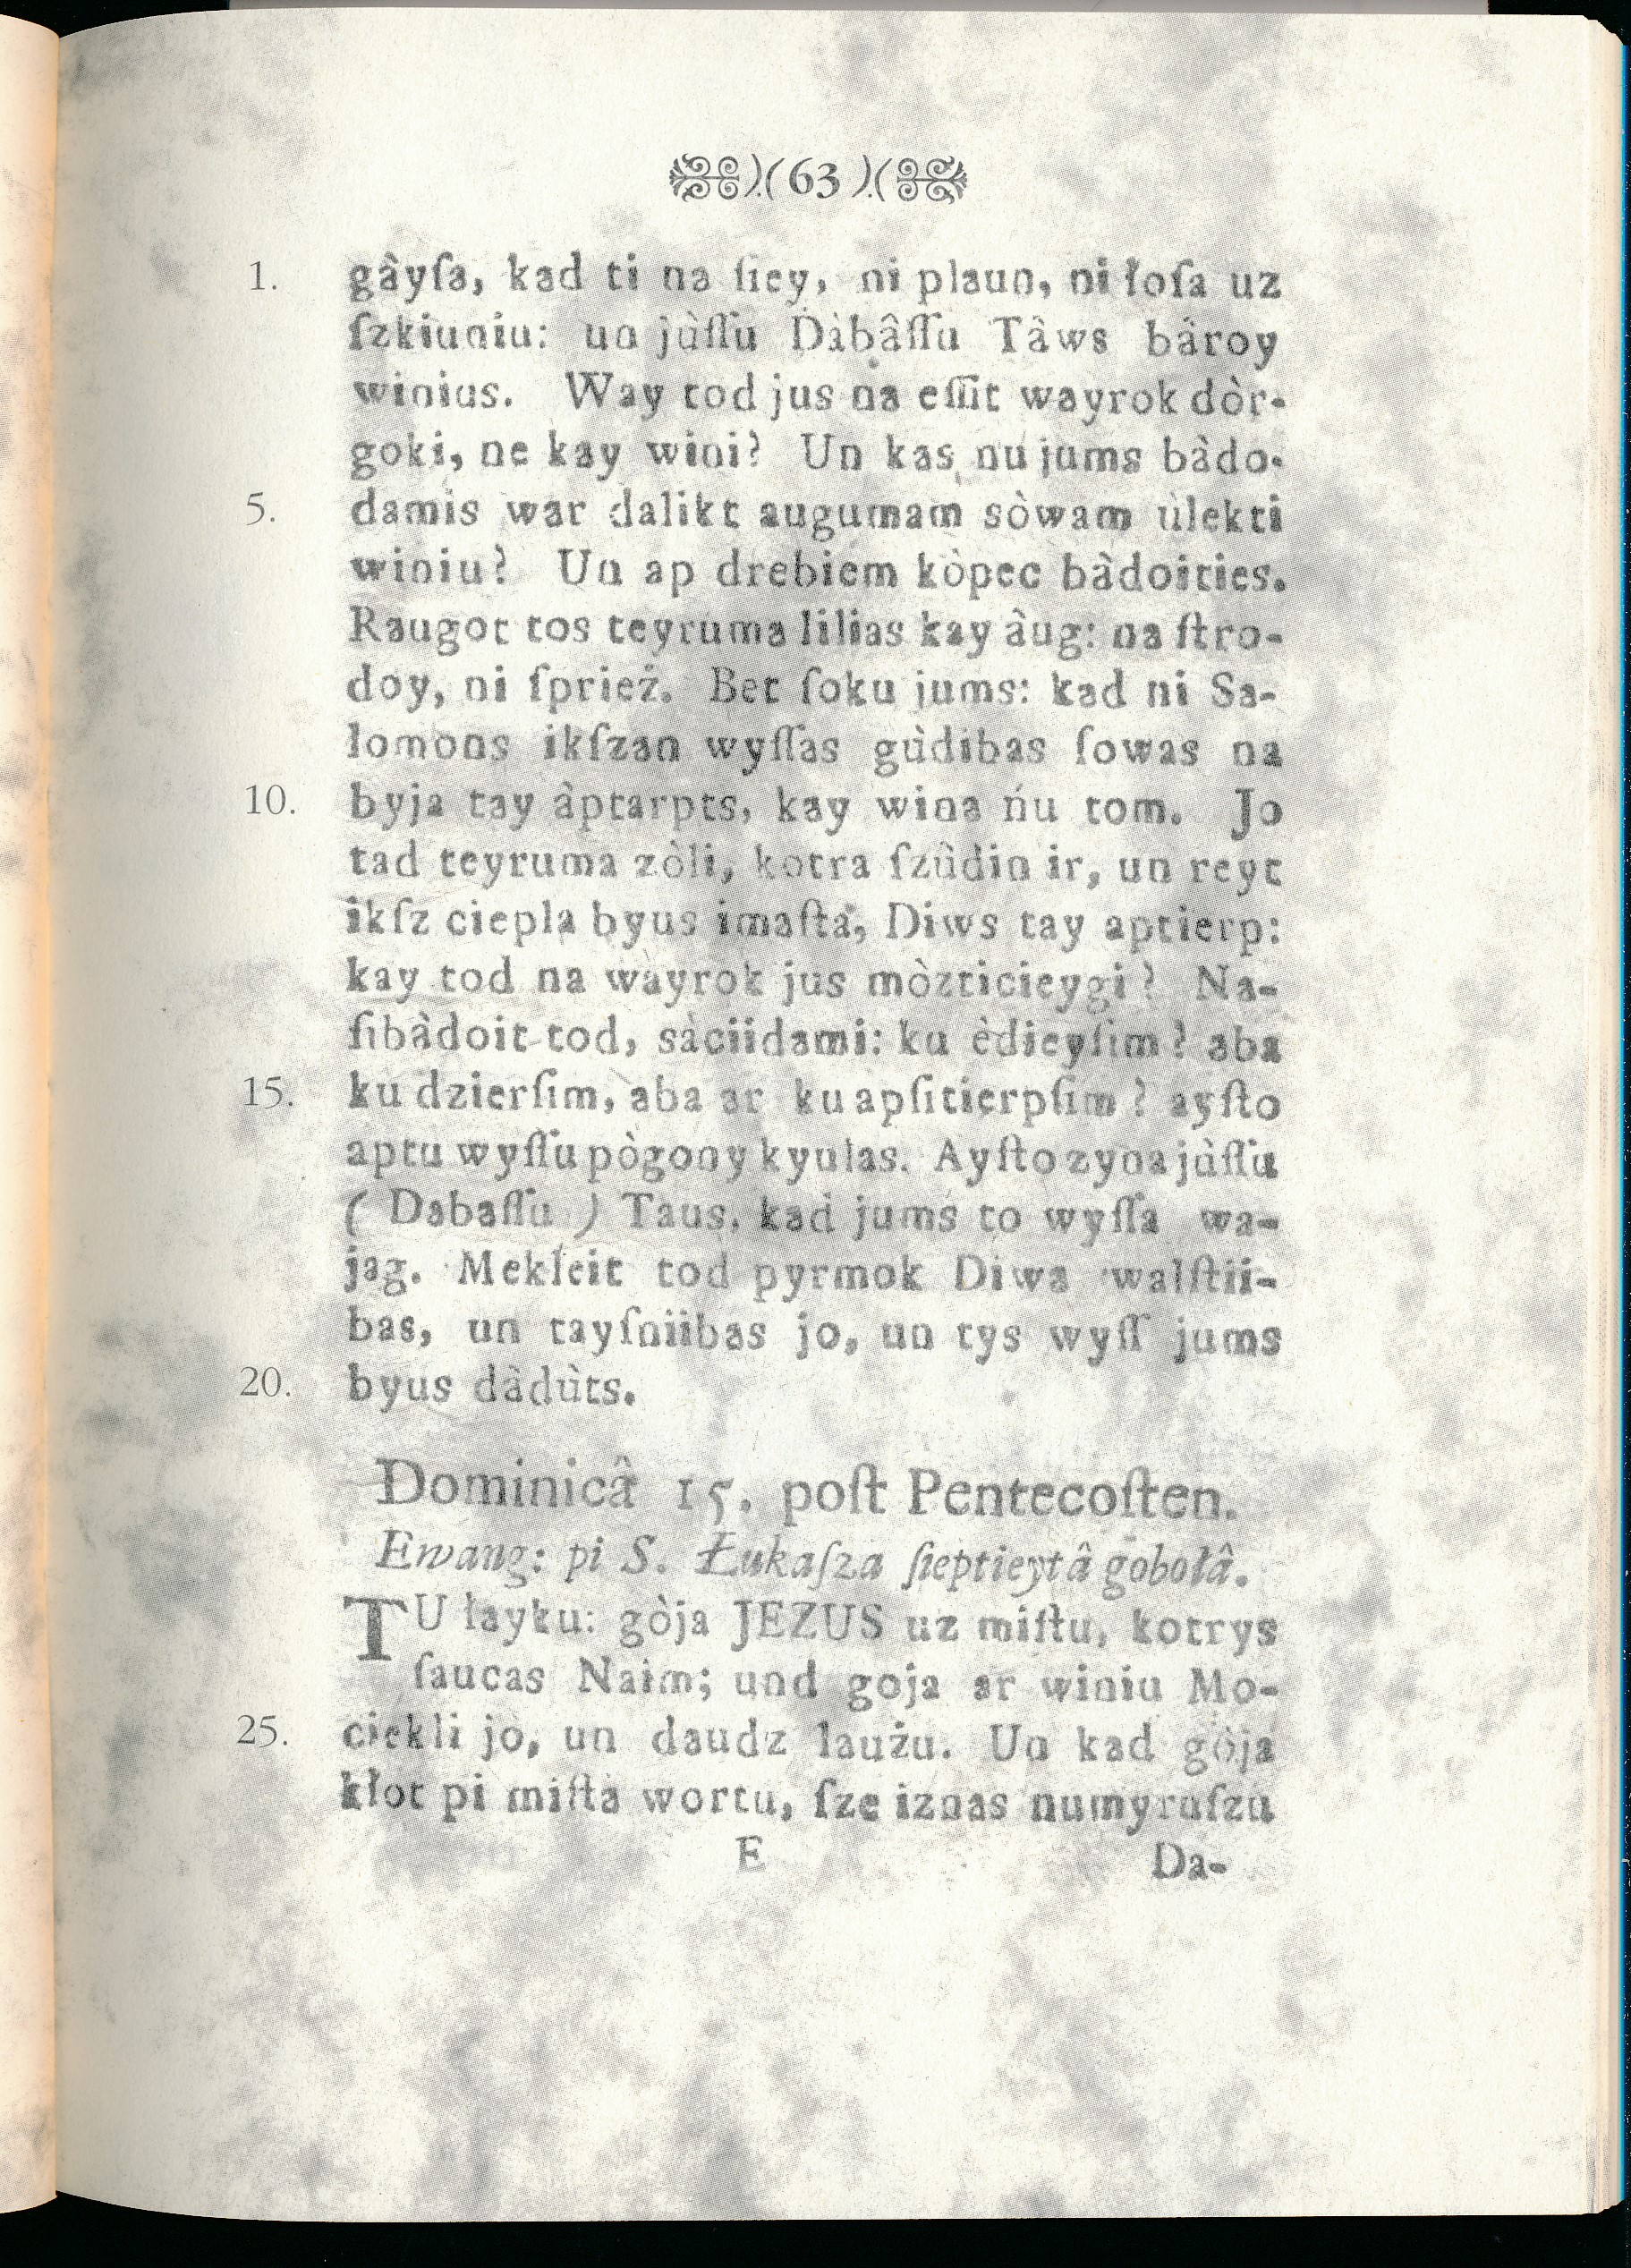 )(63)(
1. gàyſa, kad ti na ſiey, ni plaun, ni łoſa uz
ſzkiuniu: un jùſſu Dàbâſſu Tâws bároy
winius. Way tod jus na eſſit wayrok dòr-
goki, ne kay wini? Un kas nu jums bàdo-
5. damis war dalikt augumam sòwam ùlekti
winiu? Un ap drebiem kòpec bàdoities.
Raugot tos teyruma lilias kay àug: na ſtro-
doy, ni ſprież. Bet ſoku jums: kad ni Sa-
lomons ikſzan wyſſas gùdibas ſowas na
10. byja tay àptarpts, kay wina ńu tom. Jo
tad teyruma zòli, kotra ſzûdin ir, un reyt
ikſz ciepla byus imaſta, Diws tay aptierp:
kay tod na wayrok jus mòzticieygi? Na-
ſibàdoit tod, sàciidami: ku èdieyſim? aba
15. ku dzierſim, aba ar ku apſitierpſim? ayſto
aptu wyſſu pògony kyulas. Ayſto zyna jùſſu
( Dabaſſu ) Taus, kad jums to wyſſa wa-
jag. Mekleit tod pyrmok Diwa walſtii-
bas, un tayſniibas jo, un tys wyſſ jums
20. byus dàdùts.
Dominicâ 15. poſt Pentecoſten.
Ewang: pi S. Łukaſza ſieptieytâ gobołâ.
TU łayku: gòja JEZUS uz miſtu, kotrys
ſaucas Naim; und goja ar winiu Mo-
25. ciekli jo, un daudz laużu. Un kad gòja
kłot pi miſta wortu, ſze iznas numyruſzu
E Da-